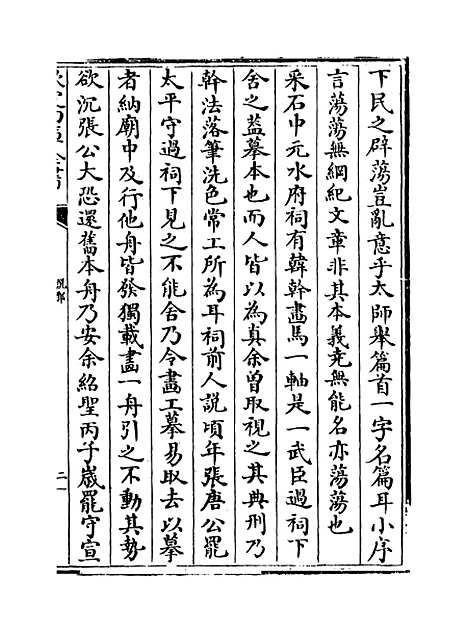 下民之辟蕩豈亂意乎太師舉篇首一字名篇耳小序
言蕩蕩無綱紀文章非其本義堯無能名亦蕩蕩也
采石中元水府祠有韓幹畫馬一軸是一武臣過祠下
舍之蓋摹本也而人皆以為真余曾取視之其典刑乃
幹法落筆洗色常工所為耳祠前人說頃年張唐公罷
太平守過祠下見之不能舍乃令畫工摹易取去以摹
者納廟中及行他舟皆發獨載畫一舟引之不動其勢
欲沉張公大恐還舊本舟乃安余紹聖丙子歲罷守宣
說郛